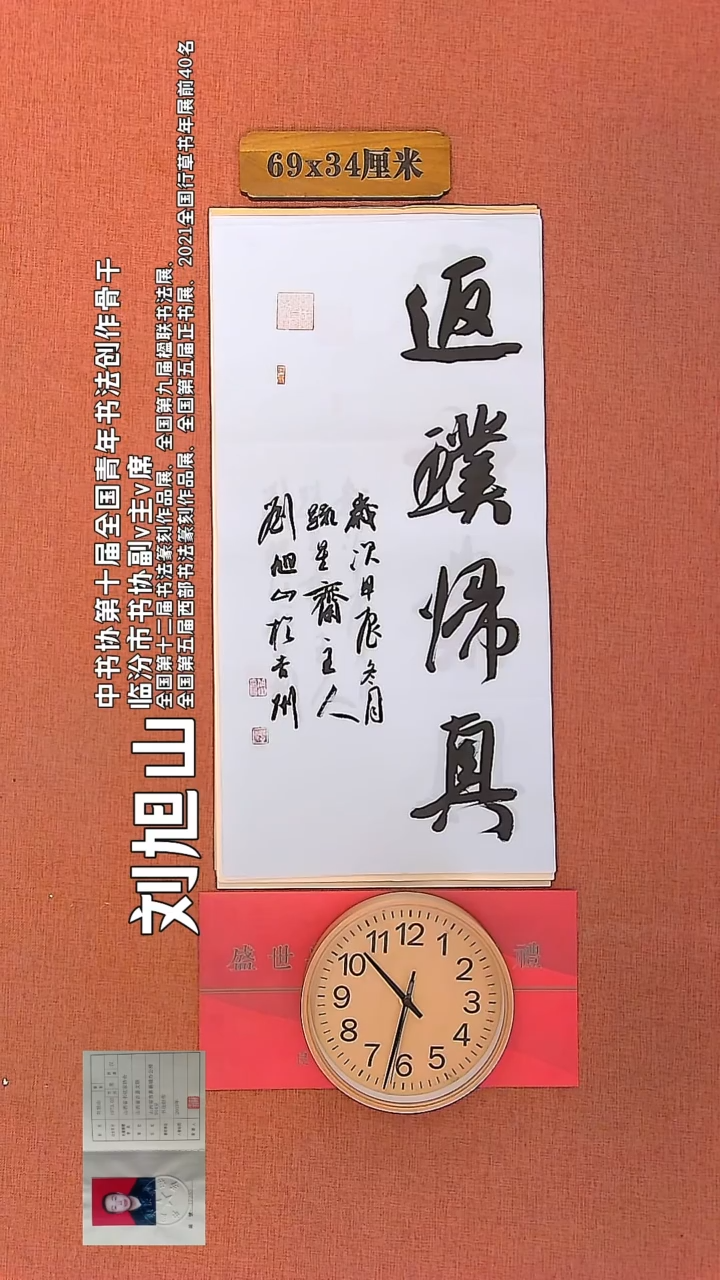 69x34厘米
返璞帰真
歲次甲辰冬月
疏星齋主人
劉旭山於吉州
中书协第十届全国青年书法创作骨干
临汾市书协副v主v席
全国第十二届书法篆刻作品展、全国第九届楹联书法展、
全国第五届西部书法篆刻作品展、全国第五届正书展、2021全国行草书年展前40名
刘旭山
盛世 禮
12 1 2 3 4 5 6 7 8 9 10 11